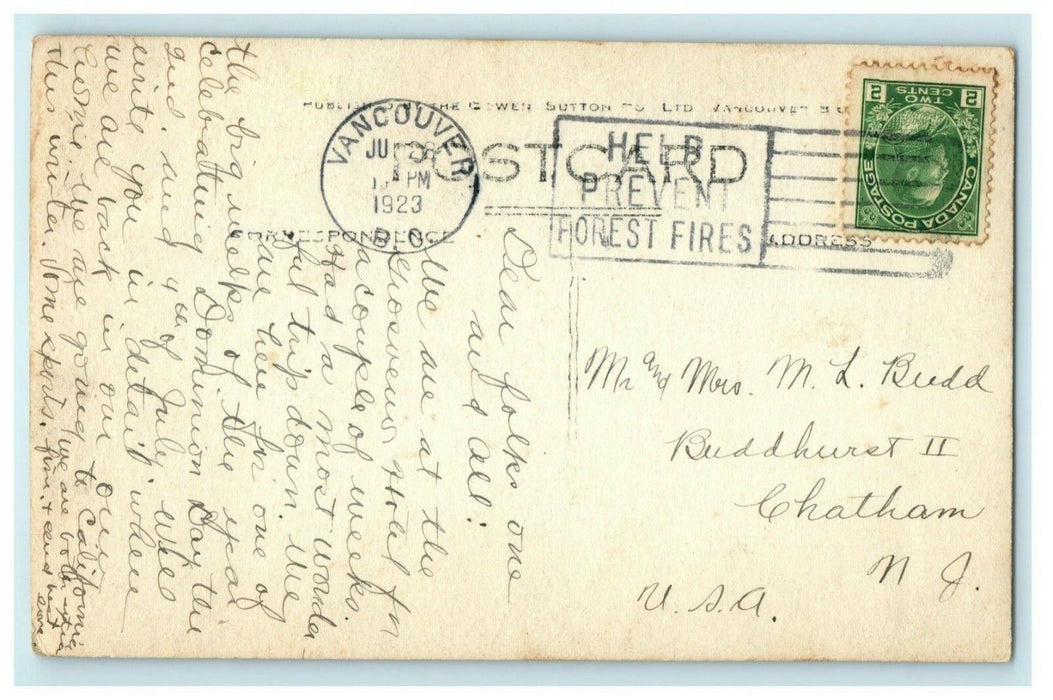 PUBLISHED BY THE GOWEN SUTTON CO LTD VANCOUVER B C
POSTCARD
CORRESPONDENCE
ADDRESS
VANCOUVER
PM
1923
B.C.
HELP
PREVENT
FOREST FIRES
2 TWO CENTS 2
CANADA POSTAGE
Mr and Mrs. M. L. Budd
Buddhurst II
Chatham
N J.
U.S.A.
Dear folks one
and all:
We are at the
Hotel for
a couple of weeks.
Had a most wonder
ful trip down. We
are here for one of
the big weeks of the year
Celebrating Dominion Day the
2nd. and 4th of July. Will
write you in detail when
we are back in our own
home. We are going to California
this winter. Some sports. We are both
fine & send best
love